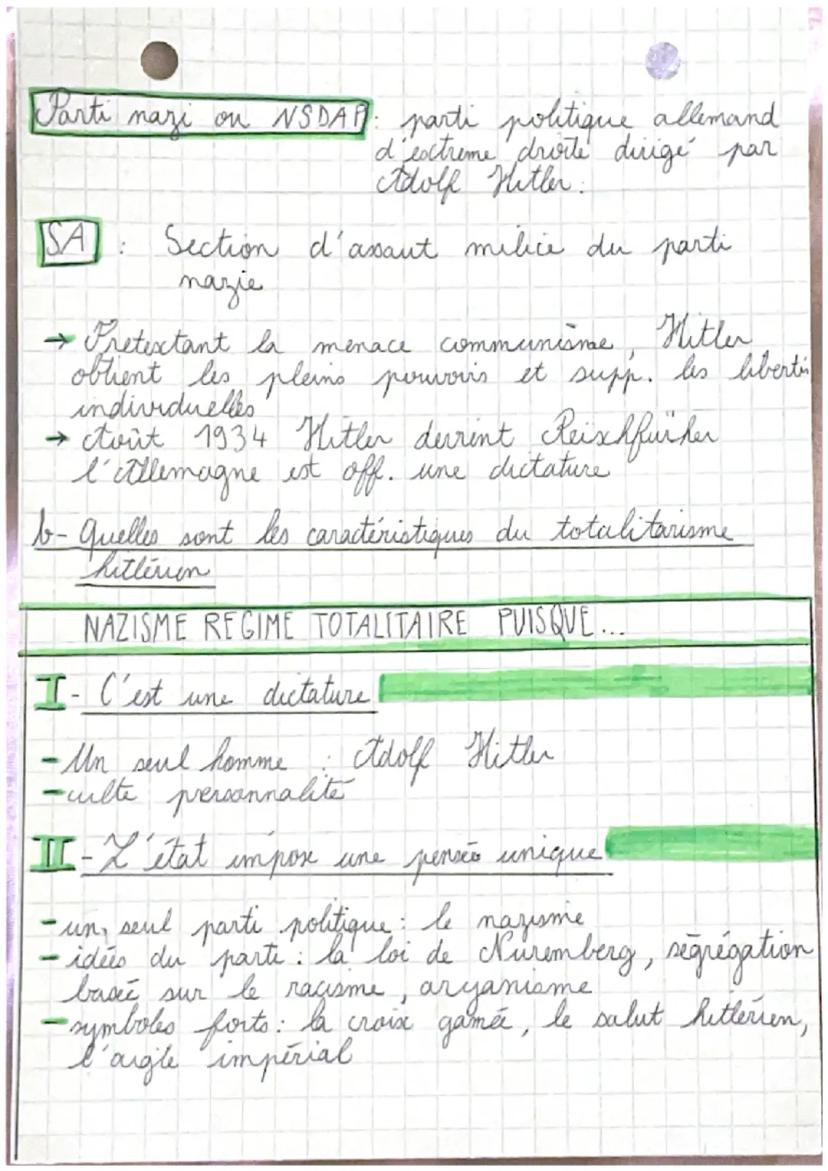 Parti nazi ou NSDAP : parti politique allemand
d'extreme droite dirigé par
Adolf Hitler.
SA : Section d'assaut milice du parti
nazie
→ Pretextant la menace communisme, Hitler
obtient les pleins pouvoirs et supp. les libertés
individuelles
→ Août 1934 Hitler devient Reischfürher
l'Allemagne est off. une dictature
b- Quelles sont les caractéristiques du totalitarisme
hitlérien
NAZISME REGIME TOTALITAIRE PUISQUE...
I - C'est une dictature
- Un seul homme : Adolf Hitler
- culte personnalité
II - L'état impose une pensée unique
- un seul parti politique : le nazisme
- idées du parti : la loi de Nuremberg, ségrégation
basée sur le racisme, aryanisme
- symboles forts : la croix gamée, le salut hitlérien,
l'aigle impérial